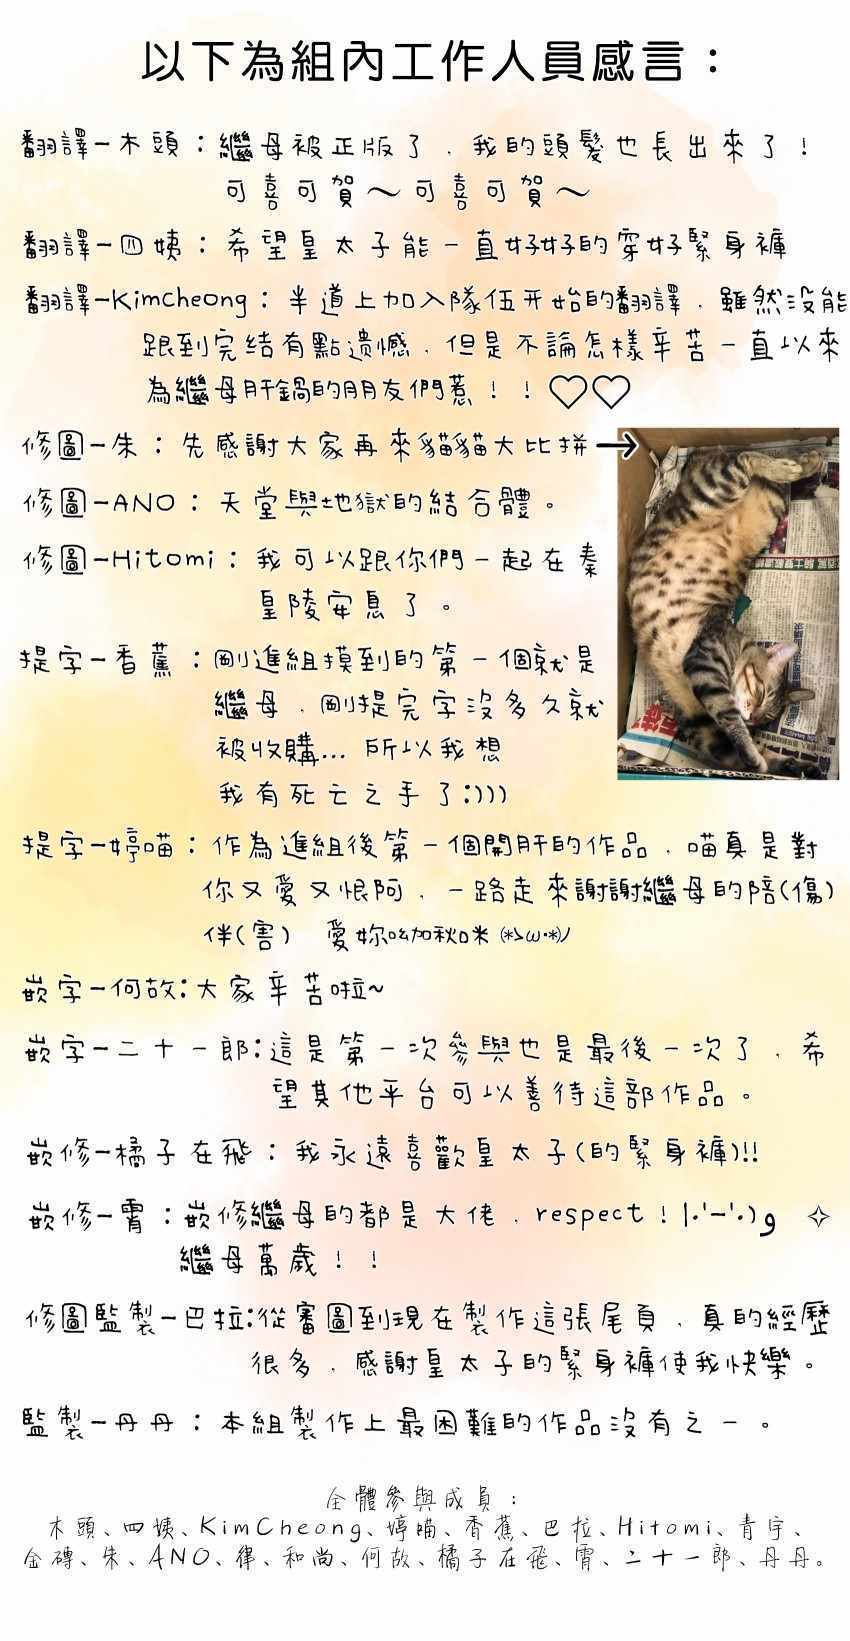 以下為組內工作人員感言：
翻譯－木頭：繼母被正版了，我的頭髮也長出來了！
可喜可賀～可喜可賀～
翻譯－四姨：希望皇太子能一直好好的穿好緊身褲
翻譯－Kimcheong：半道上加入隊伍开始的翻譯，雖然没能
跟到完结有點遺憾，但是不論怎樣辛苦一直以來
為繼母肝鍋的朋友們惹！！♡♡
修圖－朱：先感謝大家再來貓貓大比拼→
修圖－ANO：天堂與地獄的結合體。
修圖－Hitomi：我可以跟你們一起在秦
皇陵安息了。
提字－香蕉：剛進組摸到的第一個就是
繼母，剛提完字沒多久就
被收購... 所以我想
我有死亡之手了:)))
提字－婷喵：作為進組後第一個開肝的作品，喵真是對
你又愛又恨阿，一路走來謝謝繼母的陪(傷)
伴(害) 愛妳呦加秋咪 (*>ω·*)ﾉ
嵌字－何故:大家辛苦啦~
嵌字－二十一郎:這是第一次參與也是最後一次了，希
望其他平台可以善待這部作品。
嵌修－橘子在飛：我永遠喜歡皇太子(的緊身褲)!!
嵌修－霄：嵌修繼母的都是大佬，respect！|•'-'•)و ✧
繼母萬歲！！
修圖監製－巴拉:從審圖到現在製作這張尾頁，真的經歷
很多，感謝皇太子的緊身褲使我快樂。
監製－丹丹：本組製作上最困難的作品沒有之一。
全體參與成員：
木頭、四姨、KimCheong、婷喵、香蕉、巴拉、Hitomi、青宇、
金磚、朱、ANO、律、和尚、何故、橘子在飛、霄、二十一郎、丹丹。